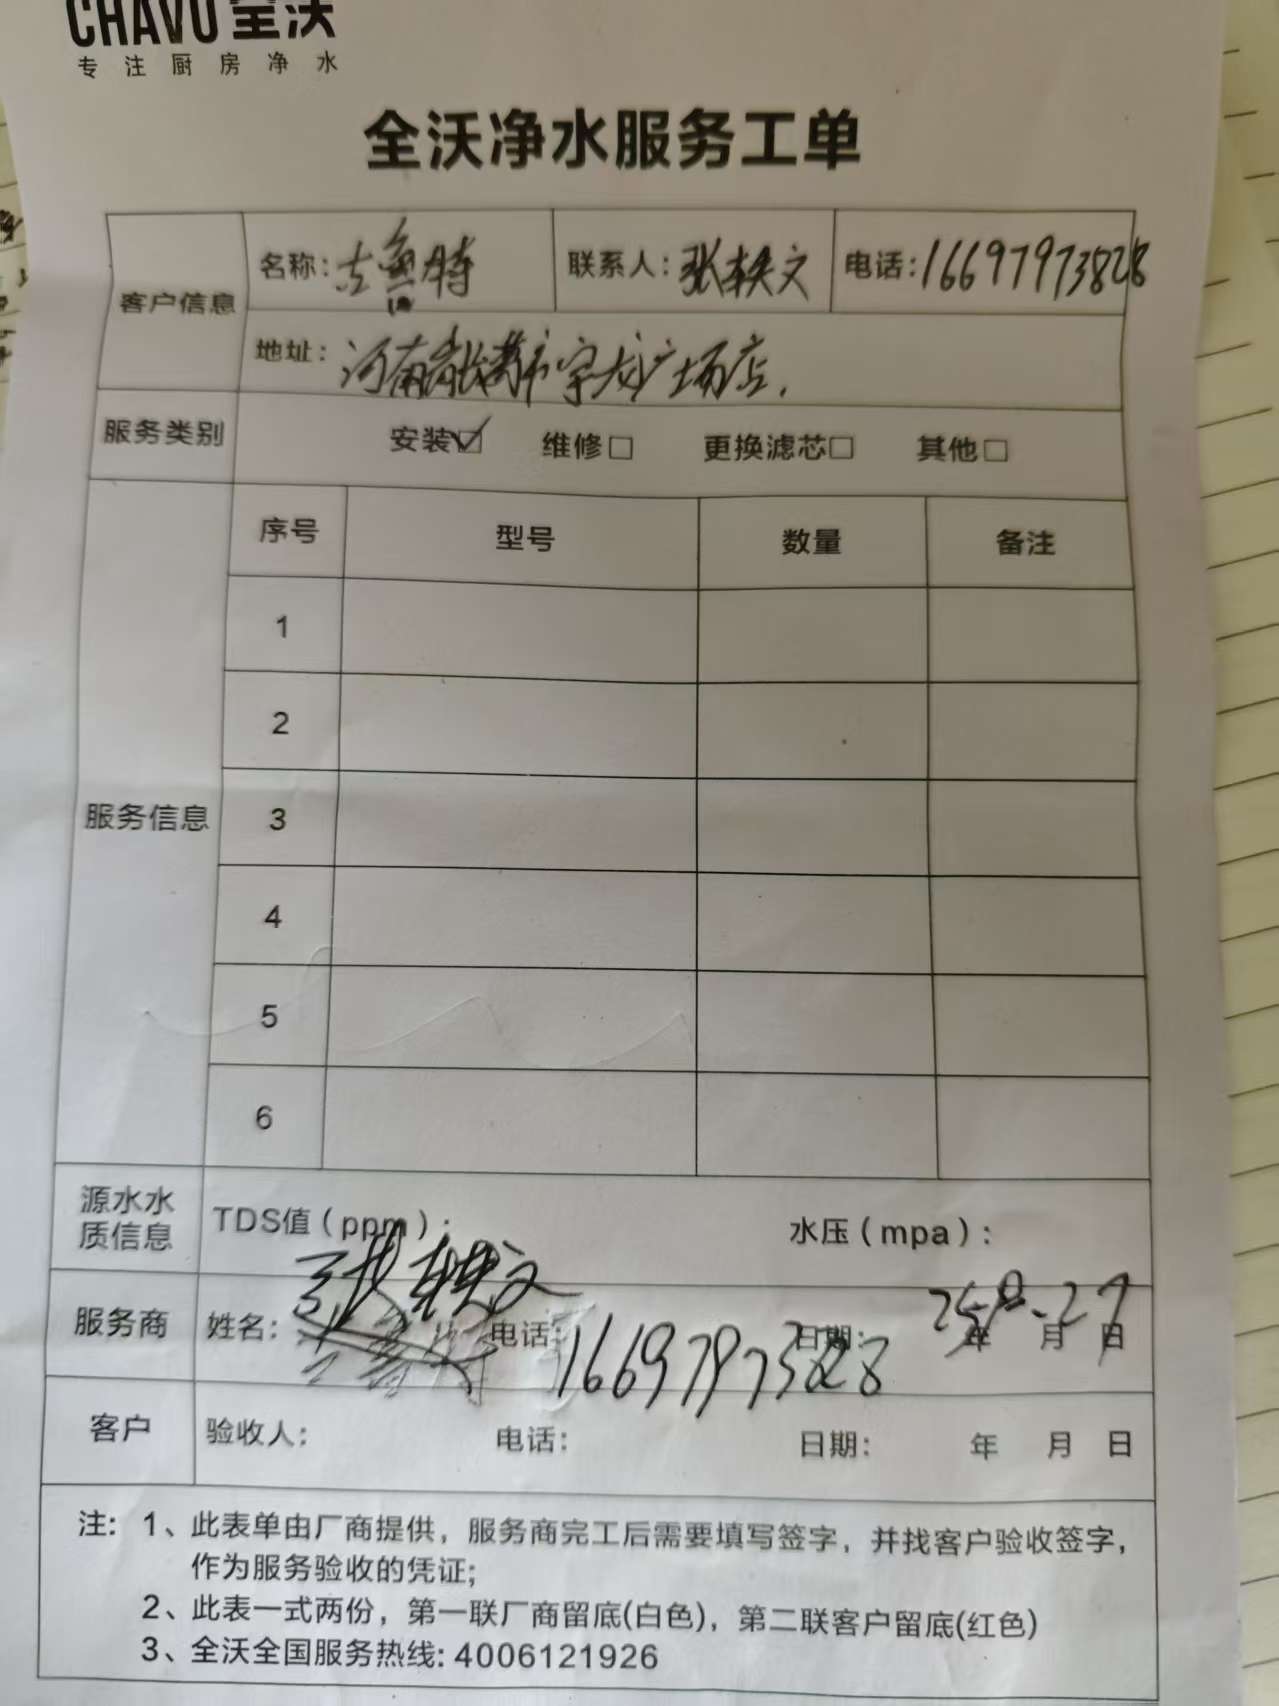 CHAVO 全沃
专注厨房净水
全沃净水服务工单
客户信息
名称：古鲁特 联系人：张轶文 电话：16697973828
地址：河南省 市宇龙广场店．
服务类别 安装☑ 维修□ 更换滤芯□ 其他□
服务信息
序号 型号 数量 备注
1
2
3
4
5
6
源水水质信息
TDS值（ppm）： 水压（mpa）：
服务商 姓名：张轶文 电话：16697973828 日期：25年 月27日
客户 验收人： 电话： 日期： 年 月 日
注：1、此表单由厂商提供，服务商完工后需要填写签字，并找客户验收签字，
作为服务验收的凭证；
2、此表一式两份，第一联厂商留底(白色)，第二联客户留底(红色)
3、全沃全国服务热线：4006121926